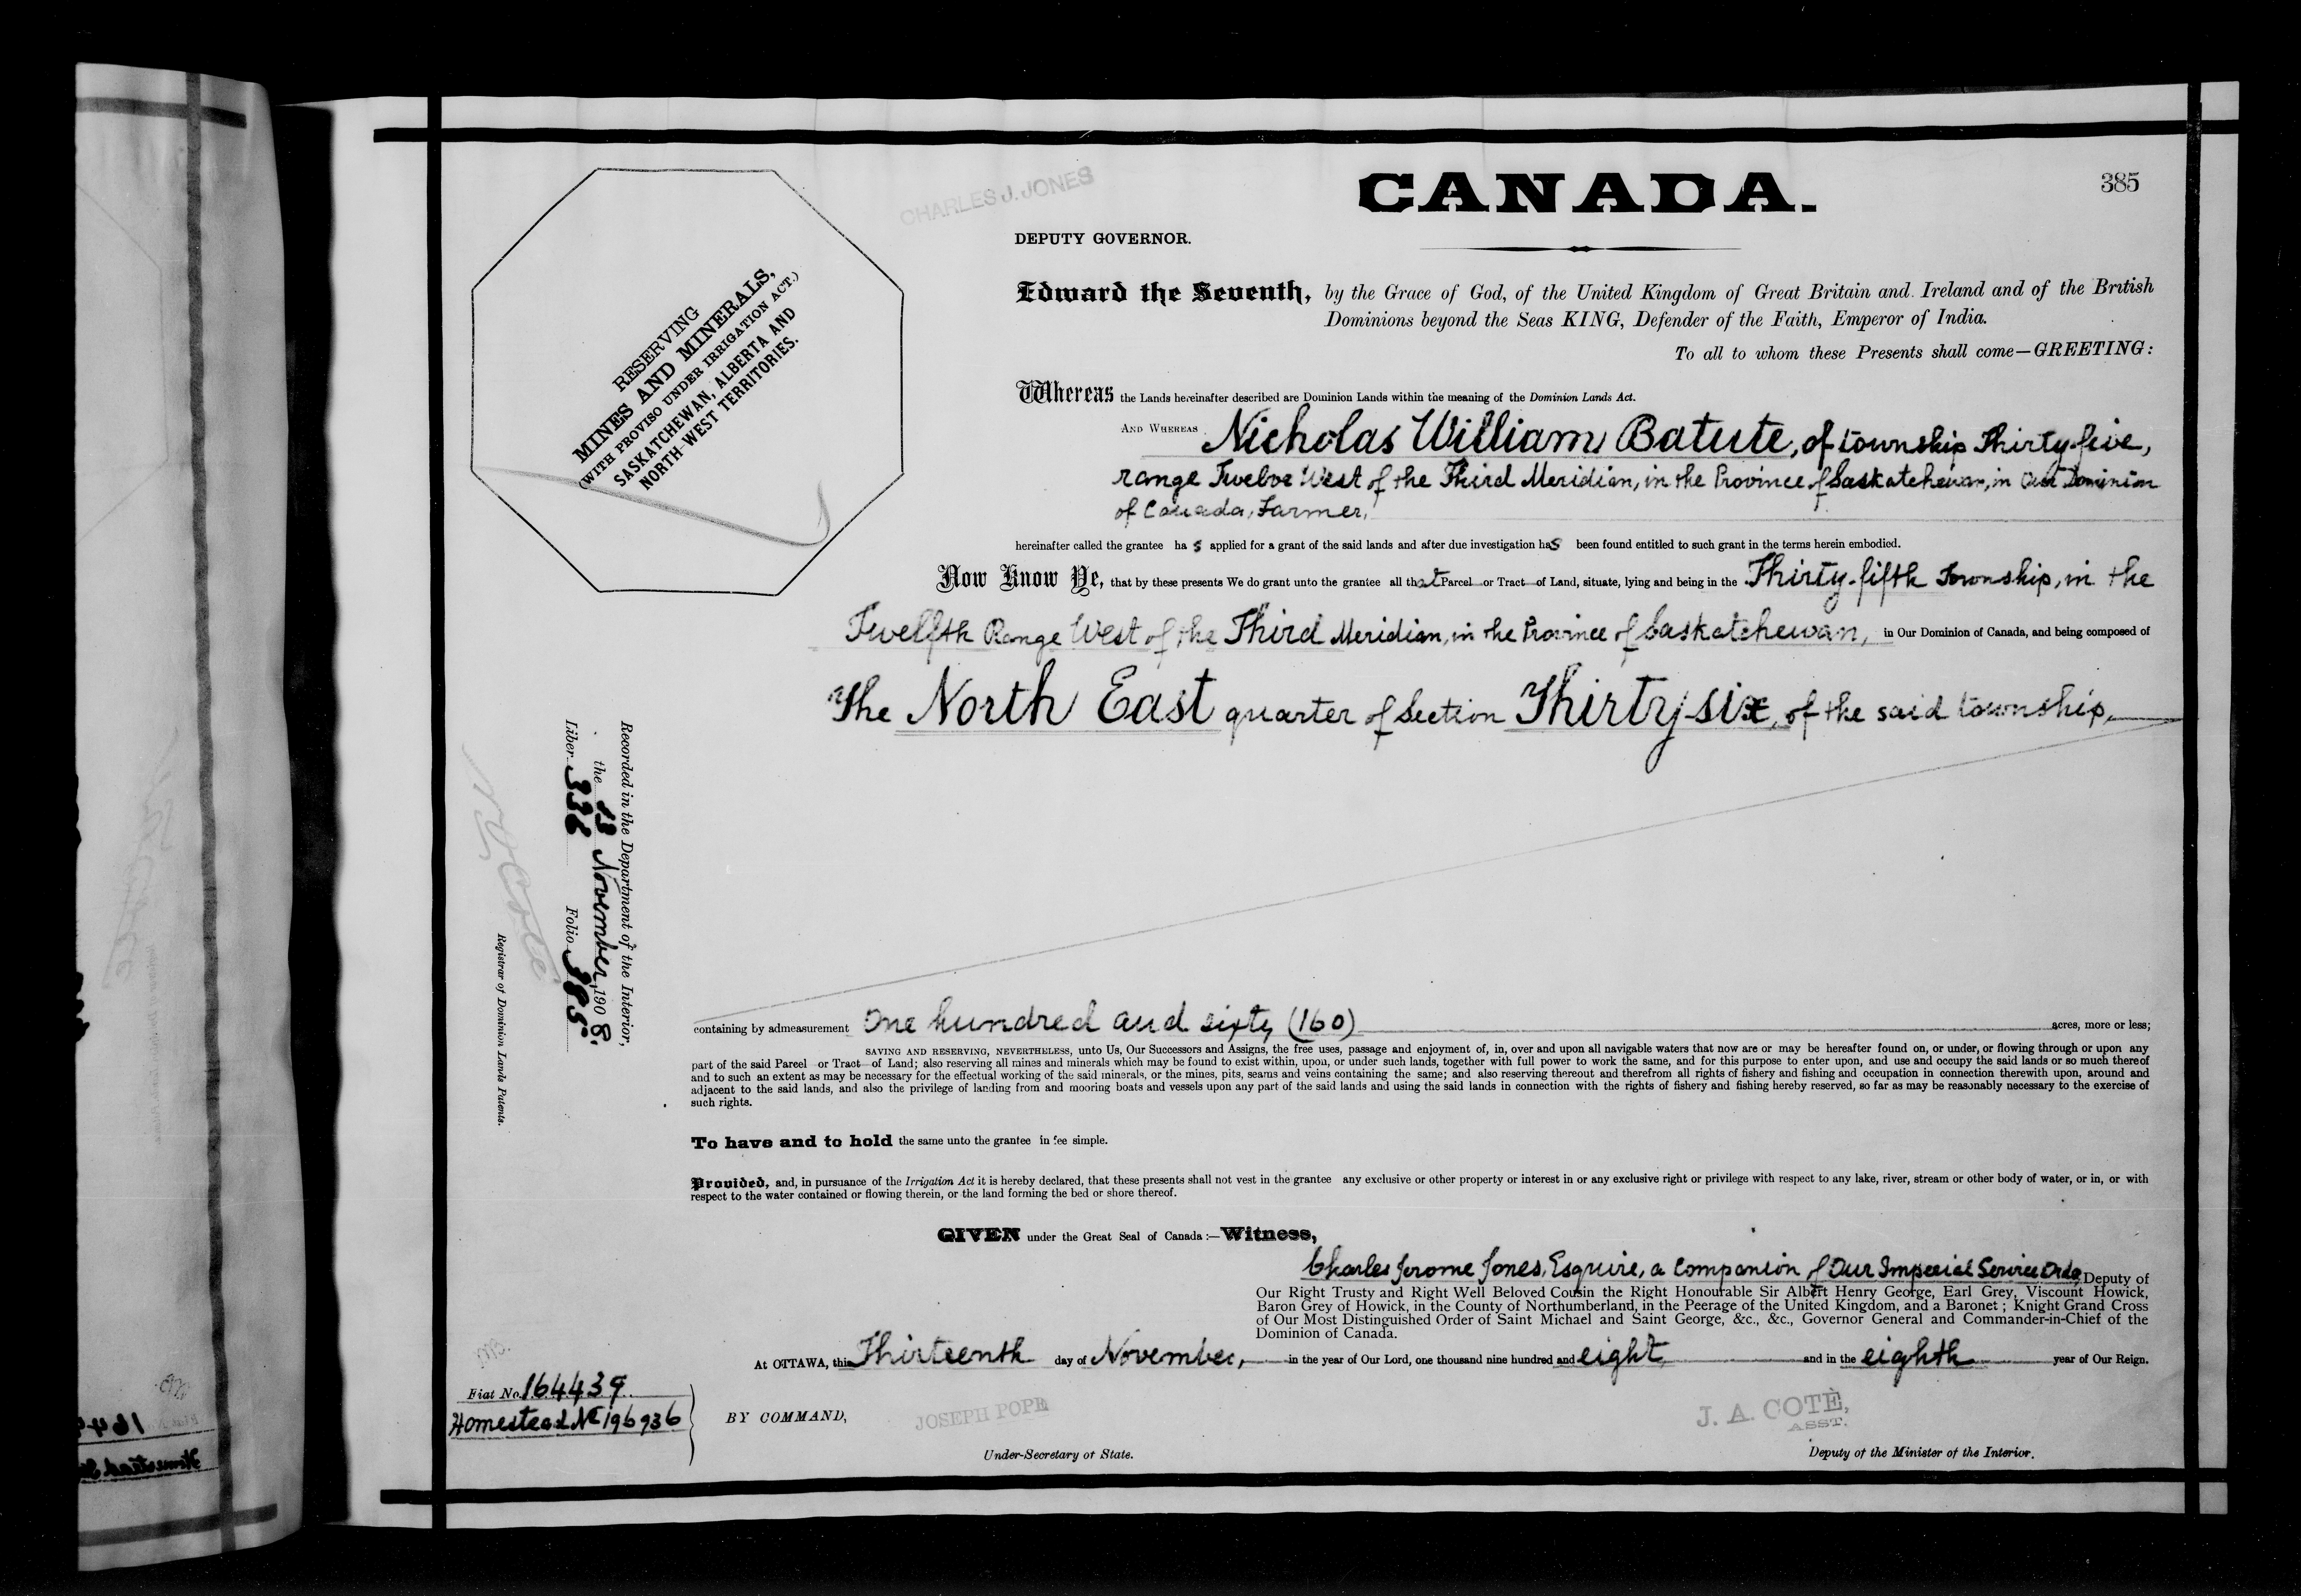 CANADA.
385
CHARLES J. JONES
DEPUTY GOVERNOR.
RESERVING
MINES AND MINERALS,
(WITH PROVISO UNDER IRRIGATION ACT.)
SASKATCHEWAN, ALBERTA AND
NORTH-WEST TERRITORIES.
Edward the Seventh, by the Grace of God, of the United Kingdom of Great Britain and Ireland and of the British
Dominions beyond the Seas KING, Defender of the Faith, Emperor of India.
To all to whom these Presents shall come—GREETING:
Whereas the Lands hereinafter described are Dominion Lands within the meaning of the Dominion Lands Act.
AND WHEREAS Nicholas William Batute, of township Thirty-five,
range Twelve West of the Third Meridian, in the Province of Saskatchewan, in Our Dominion
of Canada, Farmer,
hereinafter called the grantee ha s applied for a grant of the said lands and after due investigation has been found entitled to such grant in the terms herein embodied.
Now Know Ye, that by these presents We do grant unto the grantee all that Parcel or Tract of Land, situate, lying and being in the Thirty-fifth Township, in the
Twelfth Range West of the Third Meridian, in the Province of Saskatchewan, in Our Dominion of Canada, and being composed of
The North East quarter of Section Thirty-six, of the said township,
Recorded in the Department of the Interior,
the 13 November, 1908.
Liber 336 Folio 385.
N. O. Coté
Registrar of Dominion Lands Patents.
containing by admeasurement One hundred and sixty (160) acres, more or less;
SAVING AND RESERVING, NEVERTHELESS, unto Us, Our Successors and Assigns, the free uses, passage and enjoyment of, in, over and upon all navigable waters that now are or may be hereafter found on, or under, or flowing through or upon any
part of the said Parcel or Tract of Land; also reserving all mines and minerals which may be found to exist within, upon, or under such lands, together with full power to work the same, and for this purpose to enter upon, and use and occupy the said lands or so much thereof
and to such an extent as may be necessary for the effectual working of the said minerals, or the mines, pits, seams and veins containing the same; and also reserving thereout and therefrom all rights of fishery and fishing and occupation in connection therewith upon, around and
adjacent to the said lands, and also the privilege of landing from and mooring boats and vessels upon any part of the said lands and using the said lands in connection with the rights of fishery and fishing hereby reserved, so far as may be reasonably necessary to the exercise of
such rights.
To have and to hold the same unto the grantee in fee simple.
Provided, and, in pursuance of the Irrigation Act it is hereby declared, that these presents shall not vest in the grantee any exclusive or other property or interest in or any exclusive right or privilege with respect to any lake, river, stream or other body of water, or in, or with
respect to the water contained or flowing therein, or the land forming the bed or shore thereof.
GIVEN under the Great Seal of Canada:—Witness,
Charles Jerome Jones, Esquire, a Companion of Our Imperial Service Order Deputy of
Our Right Trusty and Right Well Beloved Cousin the Right Honourable Sir Albert Henry George, Earl Grey, Viscount Howick,
Baron Grey of Howick, in the County of Northumberland, in the Peerage of the United Kingdom, and a Baronet; Knight Grand Cross
of Our Most Distinguished Order of Saint Michael and Saint George, &c., &c., Governor General and Commander-in-Chief of the
Dominion of Canada.
At OTTAWA, this Thirteenth day of November, in the year of Our Lord, one thousand nine hundred and eight and in the eighth year of Our Reign.
Fiat No. 164439
Homestead No 196936
BY COMMAND,
JOSEPH POPE
Under-Secretary of State.
J. A. COTÉ,
ASST.
Deputy of the Minister of the Interior.